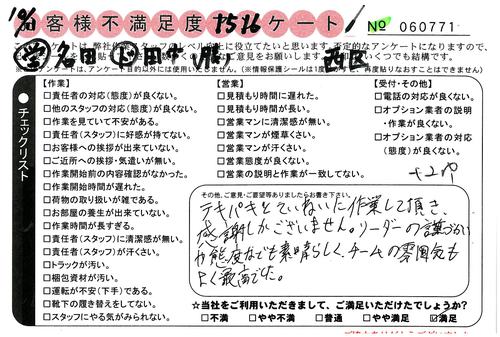 お客様不満足度アンケート!
No 060771
西区
アンケートは、アンケート目的以外には使用いたしません。(※情報保護シールは1度はがすと、再度貼りなおすことはできません)
チェックリスト
【作業】
□責任者の対応(態度)が良くない。
□他のスタッフの対応(態度)が良くない。
□作業を見ていて不安がある。
□責任者(スタッフ)に好感が持てない。
□お客様への挨拶が出来ていない。
□ご近所への挨拶・気遣いが無い。
□作業開始前の内容確認がなかった。
□作業開始時間が遅れた。
□荷物の取り扱いが雑である。
□お部屋の養生が出来ていない。
□作業時間が長すぎる。
□責任者(スタッフ)に清潔感が無い。
□責任者(スタッフ)が汗くさい。
□トラックが汚い。
□梱包資材が汚い。
□運転が不安(下手)である。
□靴下の履き替えをしてない。
□スタッフにやる気がみられない。
【営業】
□見積もり時間に遅れた。
□見積もり時間が長い。
□営業マンに清潔感が無い。
□営業マンが煙草くさい。
□営業マンが汗くさい。
□営業態度が良くない。
□営業の説明と作業が一致してない。
【受付・その他】
□電話の対応が良くない。
□オプション業者の説明
・作業が良くない。
□オプション業者の対応
(態度)が良くない。
その他、ご意見・ご要望等ありましたらお書き下さい。
テキパキとていねいに作業して頂き、
感謝しかございません。リーダーの謹づかい
や態度なども素晴らしく、チームの雰囲気も
よく最高でした。
☆当社をご利用いただきまして、ご満足いただけたでしょうか?
□不満 □やや不満 □普通 □やや満足 ☑満足